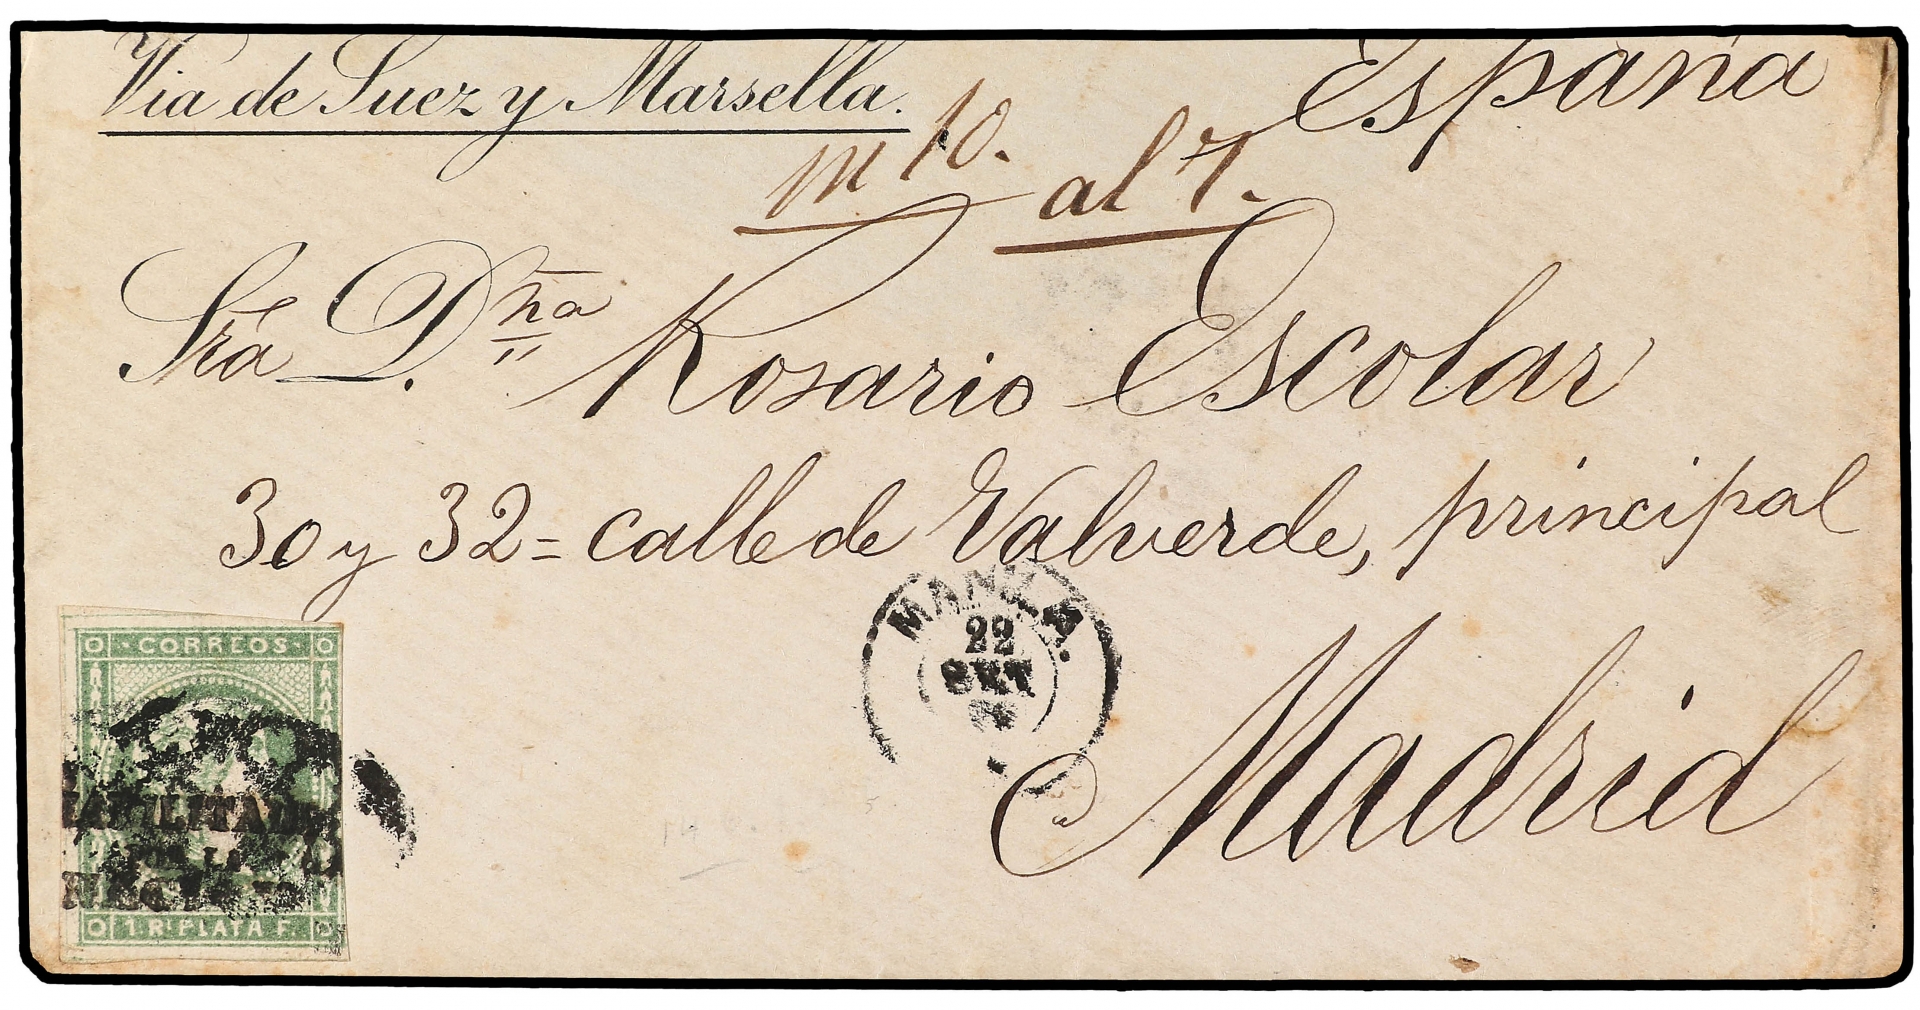 Via de Suez y Marsella.
España
M 10.
al 7.
Sra. Dña Rosario Escolar
30 y 32 = calle de Valverde, principal
Madrid
MANILA.
22
SET
CORREOS
HABILITADO
POR LA
NACION
1. Rl PLATA F.